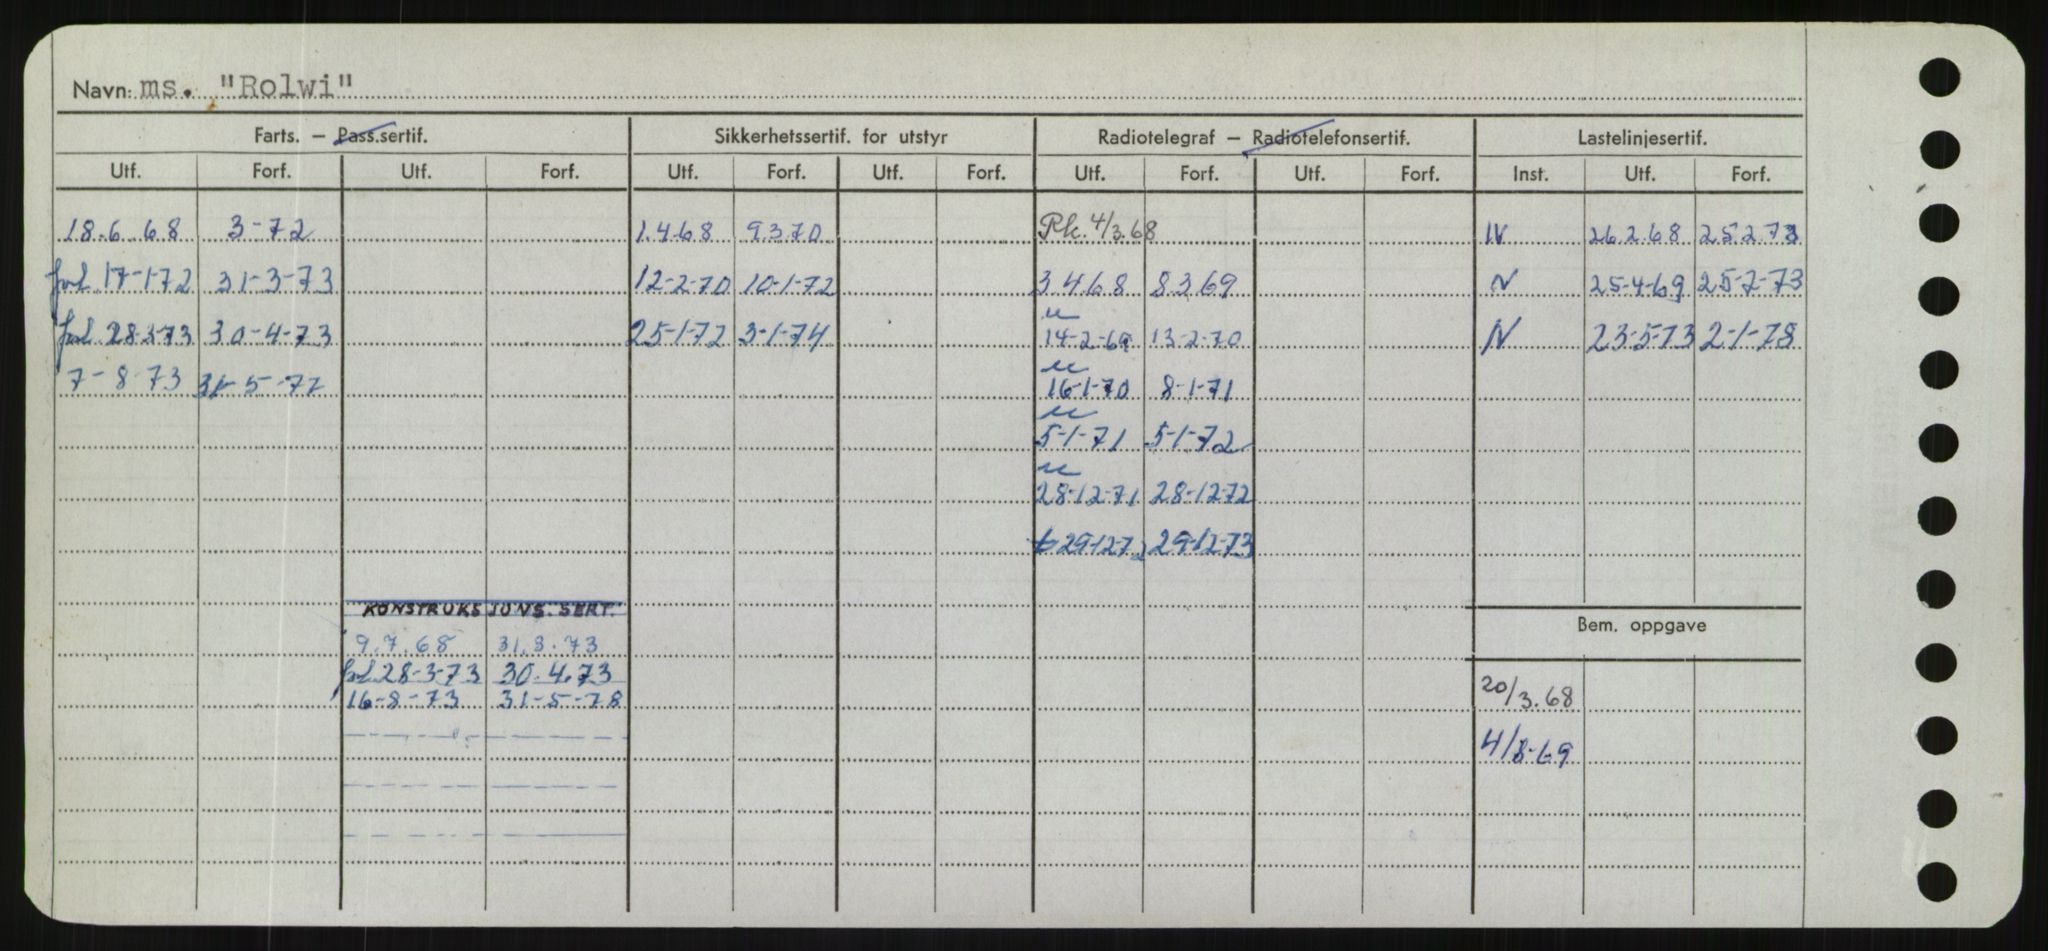 Navn: ms. "Rolwi"
Farts. – Pass.sertif. Sikkerhetssertif. for utstyr Radiotelegraf – Radiotelefonsertif. Lastelinjesertif.
Utf. Forf. Utf. Forf. Utf. Forf. Utf. Forf. Utf. Forf. Utf. Forf. Inst. Utf. Forf.
18.6.68 3-72 1.4.68 9.3.70 Rk. 4/3.68 N 26.2.68 25.2.73
forl. 17-1-72 31-3-73 12-2-70 10-1-72 3.4.68 8.3.69 N 25-4-69 25-2-73
forl. 28-3-73 30-4-73 25-1-72 3-1-74 14-2-69 13-2-70 N 23-5-73 2-1-78
7-8-73 31-5-77 16-1-70 8-1-71
5-1-71 5-1-72
28-12-71 28-12-72
29-12-72 29-12-73
KONSTRUKSJONS.SERT.
Bem. oppgave
9.7.68 31.3.73
forl 28-3-73 30.4.73
16-8-73 31-5-78
20/3.68
4/8-69